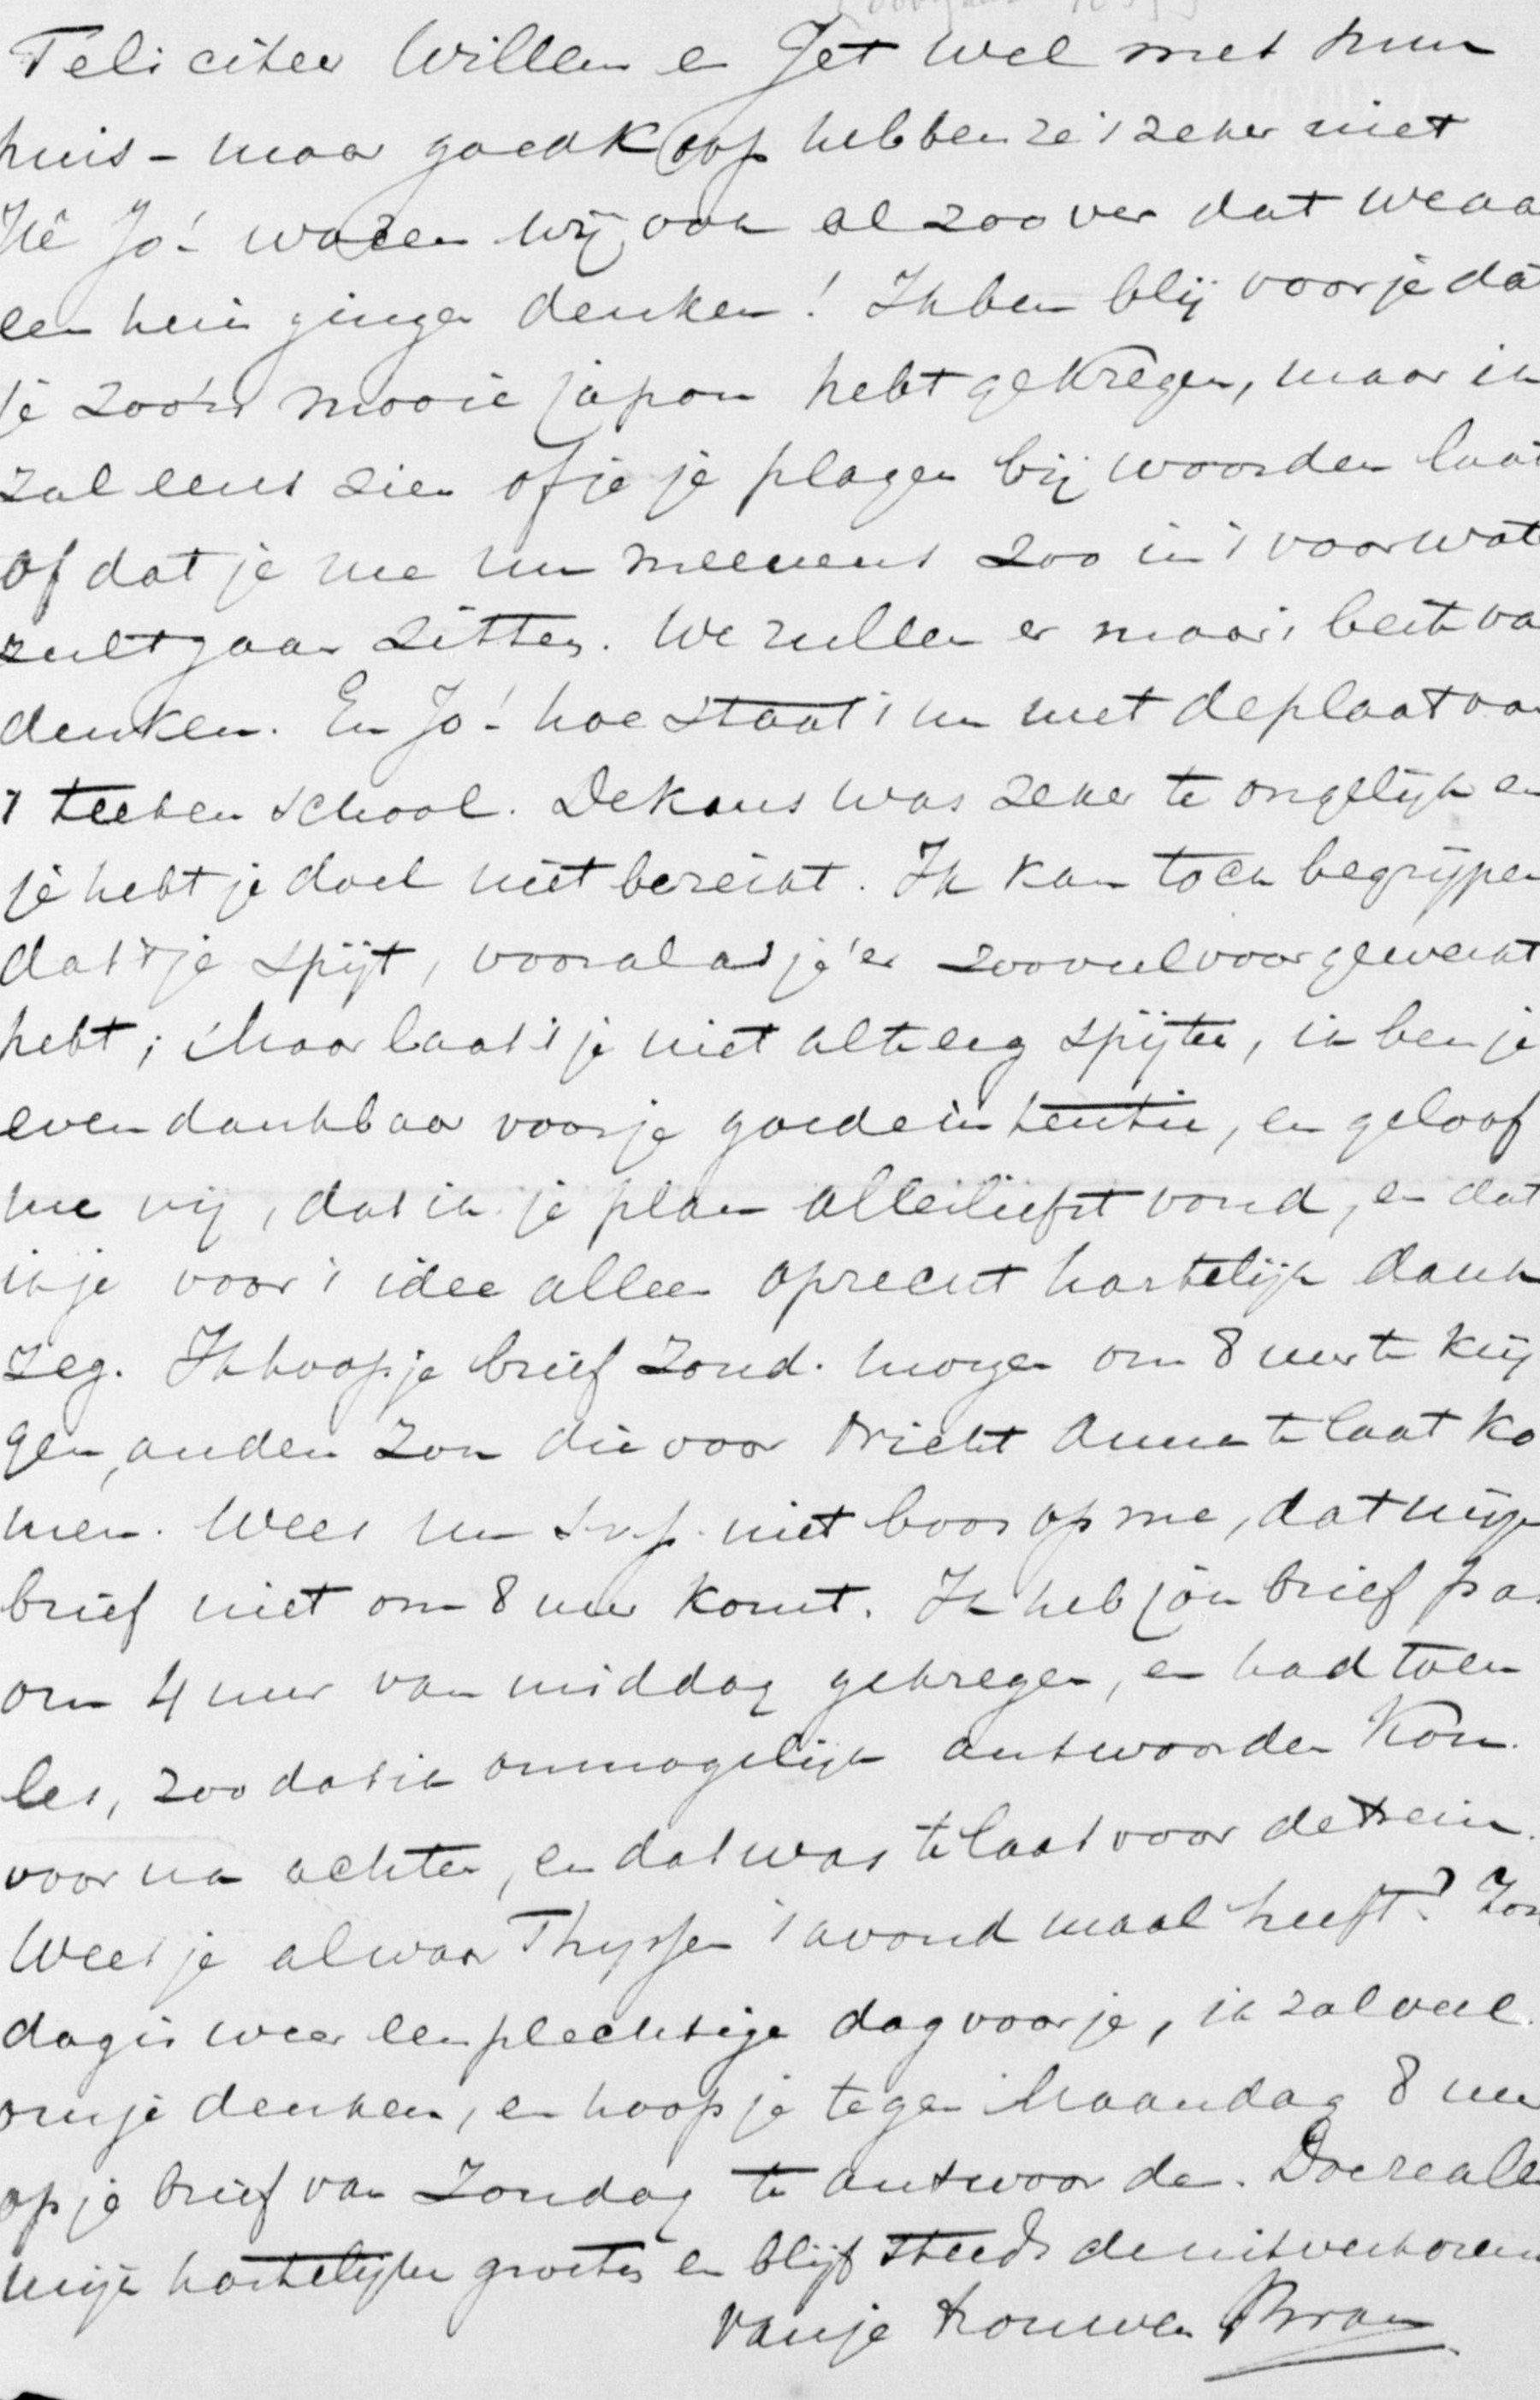 Feliciteer Willem en Jet wel met hun
huis – maar goedkoop hebben ze 't zeker niet
Hè Jo! waren wij ook al zoo ver dat we aa
een huis gingen denken! Ik ben blij voor je da
je zoo'n mooie japon hebt gekregen, maar ik
zal eens zien of je je plagen bij woorden laat
of dat je me nu meenens zoo in 't vaarwat
zult gaan zitten. We zullen er maar 't beste va
denken. En Jo! hoe staat 't nu met de plaat van
't teeken school. De kans was zeker te ongelijk en
je hebt je doel niet bereikt. Ik kan toch begrijpen
dat 't je spijt, vooral als je 'er zooveel voor gewerkt
hebt; Maar laat 't je niet al te erg spijten, ik ben je
even dankbaar voor je goede intentie, en geloof
me vrij, dat ik je plan allerliefst vond, en dat
ik je voor 't idee alleen oprecht hartelijk dank
zeg. Ik hoop je brief Zond. morgen om 8 uur te krij
gen, anders zou die voor Anna te laat ko
men. Wees nu s.v.p. niet boos op me, dat mijn
brief niet om 8 uur komt. Ik heb jou brief pas
om 4 uur van middag gekregen, en had toen
les, zoodat ik onmogelijk antwoorden kon.
voor na achten, en dat was te laat voor de trein.
Weet je al waar Thijssen 't avondmaal heeft? Zon
dag is weer een plechtige dag voor je, ik zal veel
om je denken, en hoop je tegen Maandag 8 uur
op je brief van Zondag te antwoorden. Doe ze alle
mijn hartelijke groeten en blijf steeds de uitverkoren
van je trouwen Bram